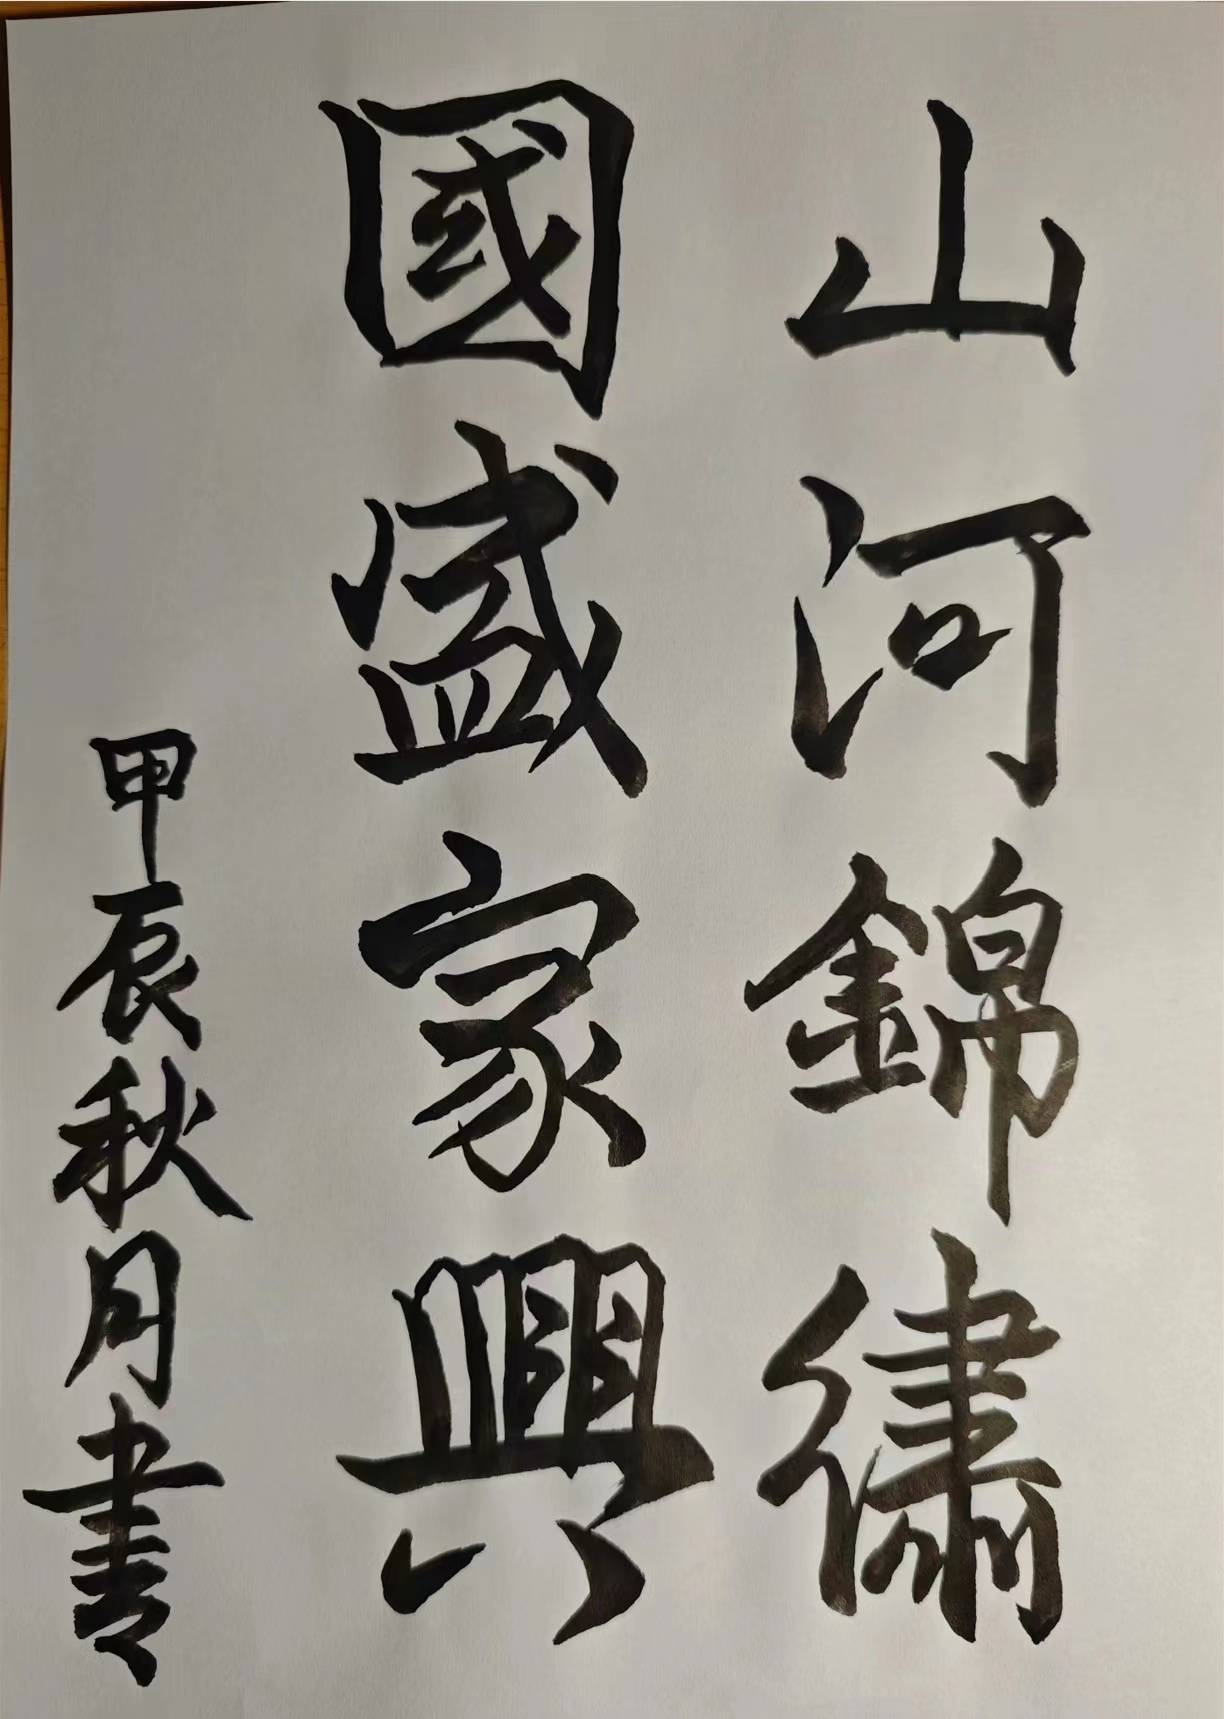 山河錦繡
國盛家興
甲辰秋月書